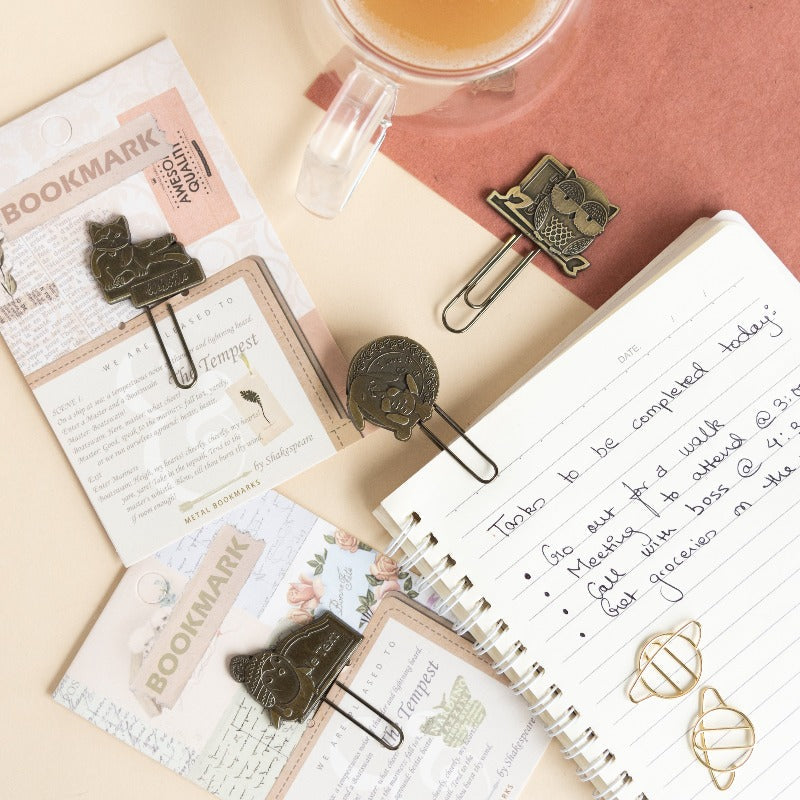 BOOKMARK
AWESOME
QUALITY
WE ARE PLEASED TO
The Tempest
SCENE I.
On a ship at sea: a tempestuous noise of thunder and lightning heard.
Enter a Master and a Boatswain
Master: Boatswain!
Boatswain: Here, master: what cheer?
Master: Good, speak to the mariners: fall to't, yarely,
or we run ourselves aground: bestir, bestir.
Exit
Enter Mariners
Boatswain: Heigh, my hearts! cheerly, cheerly, my hearts!
yare, yare! Take in the topsail. Tend to the
master's whistle. Blow, till thou burst thy wind,
if room enough!
by Shakespeare
METAL BOOKMARKS
BOOKMARK
WE ARE PLEASED TO
The Tempest
by Shakespeare
DATE
Tasks to be completed today:-
• Go out for a walk
• Meeting to attend @ 3:0
• Call with boss @ 4:3
• Get groceries on the